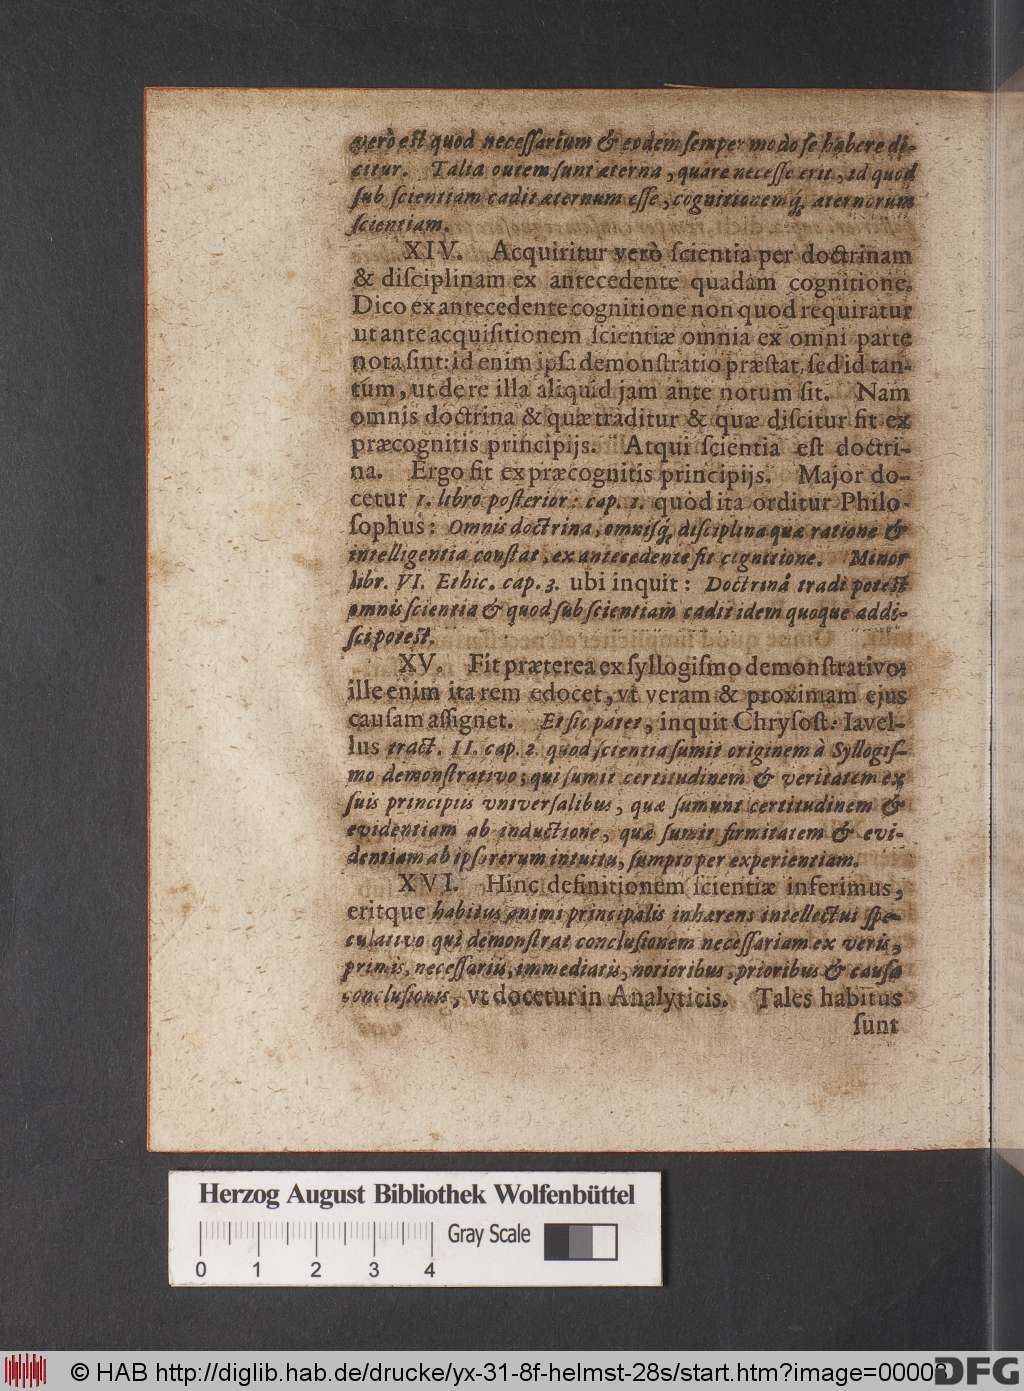 verò est quod necessarium & eodem semper modo se habere di-
citur. Talia autem sunt æterna, quare necesse erit, id quod
sub scientiam cadit æternum esse, cognitionemq́; æternorum
scientiam.
XIV. Acquiritur verò scientia per doctrinam
& disciplinam ex antecedente quadam cognitione.
Dico ex antecedente cognitione non quod requiratur
ut ante acquisitionem scientiæ omnia ex omni parte
nota sint: id enim ipsa demonstratio præstat, sed id tan-
tùm, ut de re illa aliquid jam ante notum sit. Nam
omnis doctrina & quæ traditur & quæ discitur fit ex
præcognitis principijs. Atqui scientia est doctri-
na. Ergo fit ex præcognitis principijs. Major do-
cetur 1. libro posterior: cap. 1. quod ita orditur Philo-
sophus: Omnis doctrina, omnisq́; disciplina quæ ratione &
intelligentia constat, ex antecedente fit cognitione. Minor
libr. VI. Ethic. cap. 3. ubi inquit: Doctrinâ tradi potest
omnis scientia & quod sub scientiam cadit idem quoque addi-
sci potest.
XV. Fit præterea ex syllogismo demonstrativo:
ille enim ita rem edocet, vt veram & proximam ejus
causam assignet. Et sic patet, inquit Chrysost: Iavel-
lus tract. II. cap. 2. quod scientia sumit originem à Syllogis-
mo demonstrativo; qui sumit certitudinem & veritatem ex
suis principiis vniversalibus, quæ sumunt certitudinem &
evidentiam ab inductione, quæ sumit firmitatem & evi-
dentiam ab ipso rerum intuitu, sumpto per experientiam.
XVI. Hinc definitionem scientiæ inferimus,
eritque habitus animi principalis inhærens intellectui spe-
culativo qui demonstrat conclusionem necessariam ex veris,
primis, necessariis, immediatis, notioribus, prioribus & causa
conclusionis, vt docetur in Analyticis. Tales habitus
sunt
Herzog August Bibliothek Wolfenbüttel
Gray Scale
0 1 2 3 4
© HAB http://diglib.hab.de/drucke/yx-31-8f-helmst-28s/start.htm?image=00008
DFG